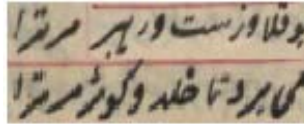 بو قلاوزست و رهبر مر ترا
می برد تا خلد و کوثر مر ترا